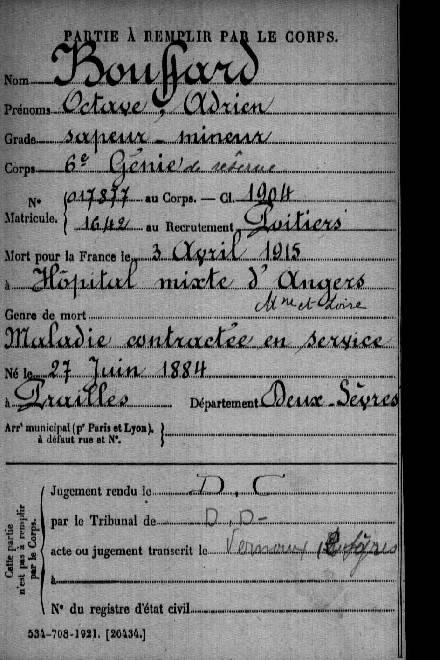 PARTIE À REMPLIR PAR LE CORPS.
Nom Bouffard
Prénoms Octave, Adrien
Grade sapeur-mineur
Corps 6e Génie de réserve
N° 017877 au Corps. — Cl. 1904
Matricule. 1642 au Recrutement Poitiers
Mort pour la France le 3 Avril 1915
à Hôpital mixte d'Angers
Mne et Loire
Genre de mort
Maladie contractée en service
Né le 27 Juin 1884
à Prailles Département Deux-Sèvres
Arrt municipal (pr Paris et Lyon),
à défaut rue et N°.
Cette partie
n'est pas à remplir
par le Corps.
Jugement rendu le D. C
par le Tribunal de D D-
acte ou jugement transcrit le Vernoux
à
N° du registre d'état civil
534-708-1921. [20434.]